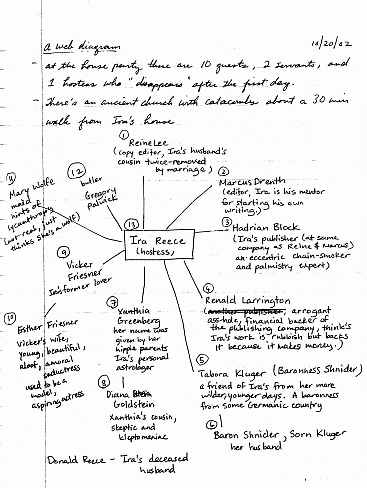 a web diagram
10/20/02
at the house party there are 10 guests, 2 servants, and
1 hostess who "disappears" after the first day.
There's an ancient church with catacombs about a 30 min
walk from Ira's house.
① Reine Lee
(copy editor, Ira's husband's
cousin twice-removed
by marriage)
② Marcus Drenth
(editor, Ira is his mentor
for starting his own
writing.)
③ Hadrian Block
(Ira's publisher (at same
company as Reine & Marcus)
an eccentric chain-smoker
and palmistry expert)
④ Renald Larrington
(another publisher, arrogant
ass-hole, financial backer of
the publishing company, think's
Ira's work is rubbish but backs
it because it makes money.)
⑤ Tabora Kluger (Baronness Shnider)
a friend of Ira's from her more
wilder, younger days. A baronness
from some Germanic country
⑥ Baron Shnider, Sorn Kluger
her husband
⑦ Xanthia
Greenberg
her name was
given by her
hippie parents
Ira's personal
astrologer
⑧ Diana
Goldstein
Xanthia's cousin,
skeptic and
kleptomaniac
⑨ Vicker
Friesner
Ira's former lover
⑩ Esther Friesner
Vicker's wife,
young, beautiful,
aloof, amoral
seductress
used to be a
model,
aspiring actress
⑪ Mary Wolfe
maid
hints of
lycanthropy
(not real, just
thinks she's a wolf)
⑫ butler
Gregory
Palwick
⑬ Ira Reece
(hostess)
Donald Reece - Ira's deceased
husband